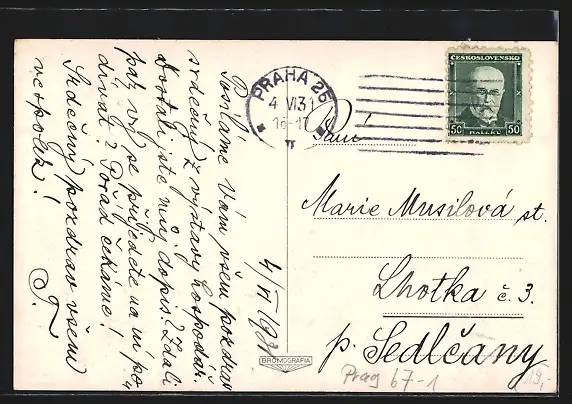 4/VI 1931
Posíláme Vám všem pozdrav
srdečný z výstavy hospodář.
Dostali jste můj dopis? Zdali
pak vy se přijedete na ni po-
dívat? Pořád čekáme!
Srdečný pozdrav všem
vespolek!
T.
PRAHA 25
4 VI 31
16-17
ČESKOSLOVENSKO
50 HALÉŘŮ 50
Paní
Marie Musilová st.
Lhotka č. 3.
p. Sedlčany
BROMOGRAFIA
Prag 67-1
19,-